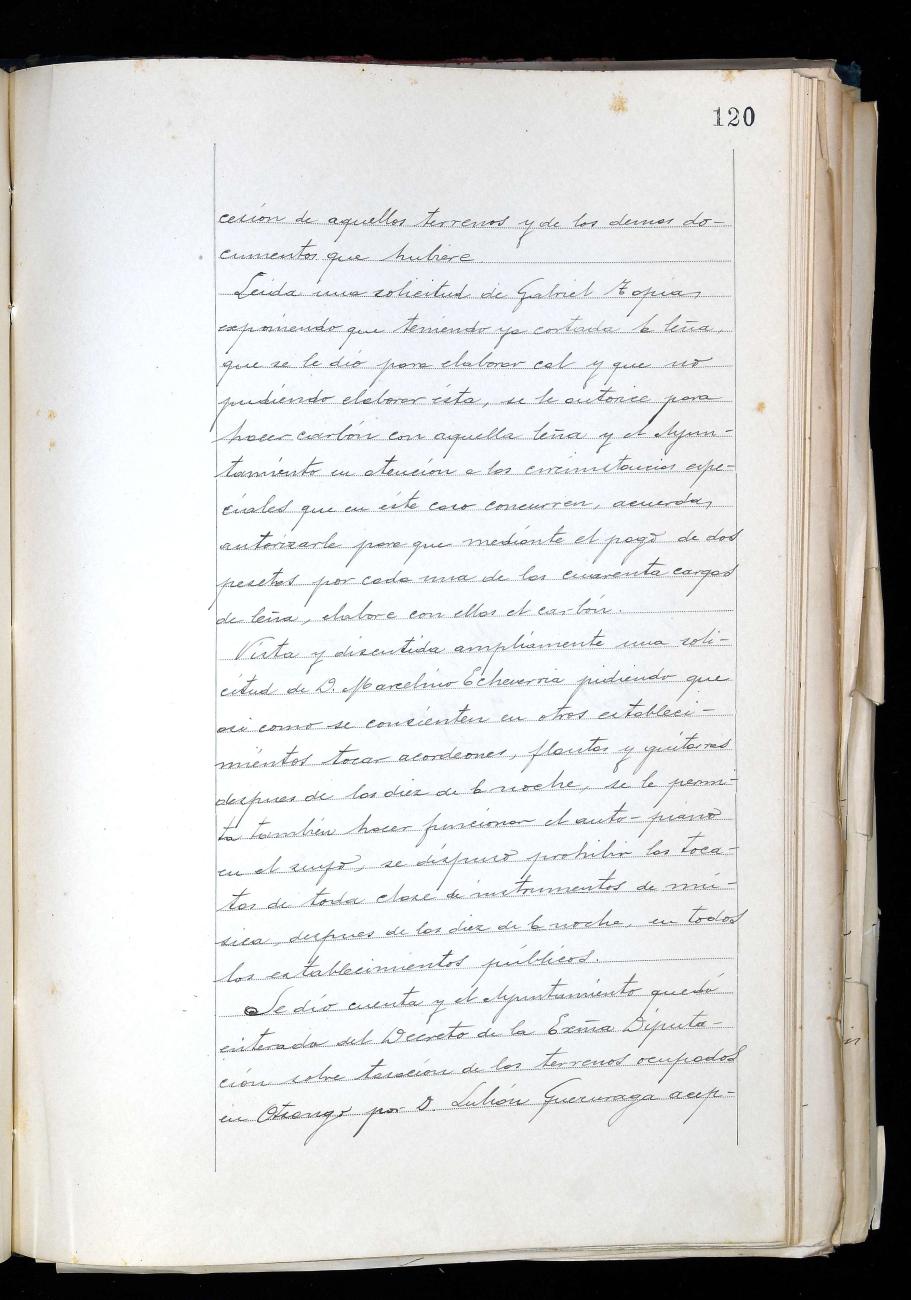 120
cesión de aquellos terrenos y de los demas do-
cumentos que hubiere
Leida una solicitud de Gabriel
exponiendo que teniendo ya cortada la leña,
que se le dió para elaborar cal y que no
pudiendo elaborar ésta, se le autorice para
hacer carbón con aquella leña y el Ayun-
tamiento en atención a las circunstancias espe-
ciales que en éste caso concurren, acuerda,
autorizarle para que mediante el pago de dos
pesetas por cada una de las cuarenta cargas
de leña, elabore con ellas el carbón.
Vista y discutida ampliamente una soli-
citud de D. Marcelino Echeverria pidiendo que
asi como se consienten en otros estableci-
mientos tocar acordeones, flautas y guitarras
despues de las diez de la noche, se le permi-
ta también hacer funcionar el auto-piano
en el suyo, se dispuso prohibir las toca-
tas de toda clase de instrumentos de mú-
sica, despues de las diez de la noche, en todos
los establecimientos públicos.
Se dió cuenta y el Ayuntamiento quedó
enterado del Decreto de la Exma Diputa-
ción sobre tasación de los terrenos ocupados
en Otsango por D. Julián Guenuraga acep-